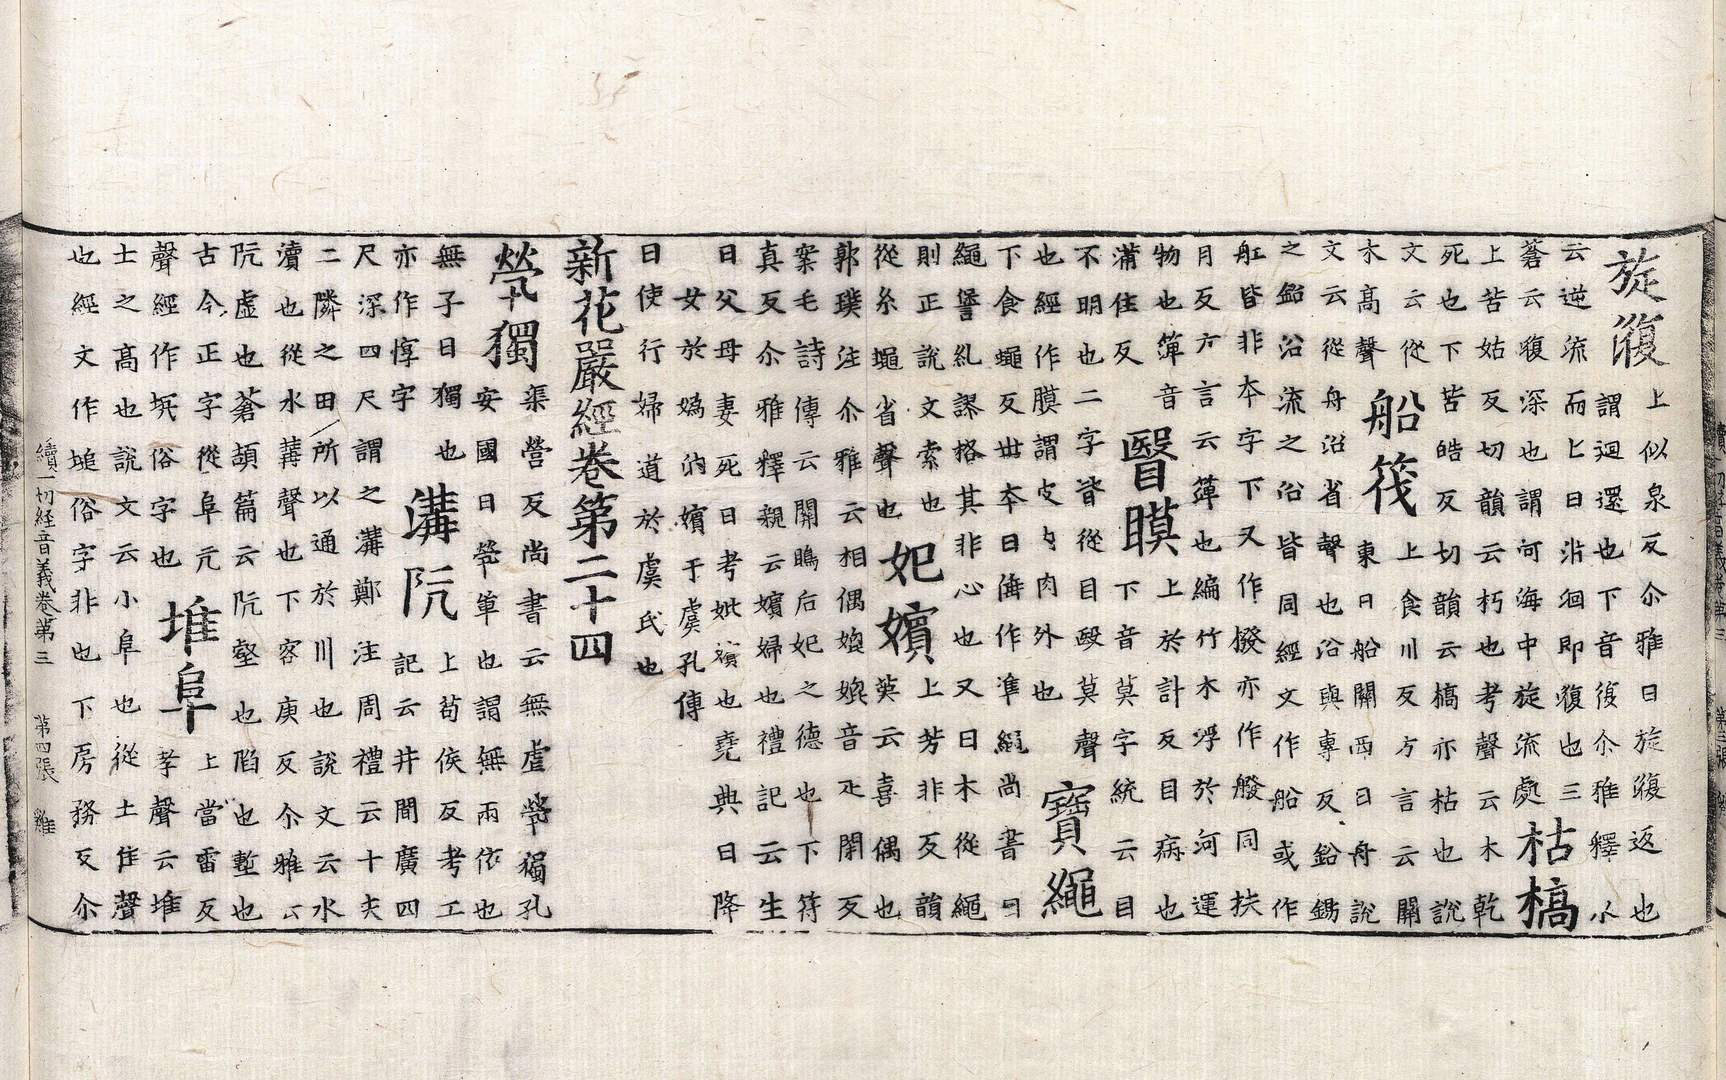 旋澓
上似泉反尒雅曰旋澓返也
謂迴還也下音復尒雅釋水
云逆流而上曰泝洄即澓也三
蒼云澓深也謂河海中旋流處
枯槁
上苦姑反切韻云朽也考聲云木乾
死也下苦皓反切韻云槁亦枯也說
文云從
木高聲
船筏
上食川反方言云關
東曰船關西曰舟說
文云從舟沿省聲也沿與專反鈆錫
之鈆沿流之沿皆同經文作船或作
舡皆非本字下又作橃亦作艐同扶
月反方言云簰也編竹木浮於河運
物也簰音
蒲佳反
瞖瞙
上於計反目病也
下音莫字統云目
不明也二字皆從目殹莫聲
也經作膜謂皮內肉外也
寶繩
下食蠅反世本曰倕作準繩尚書曰
繩諐糺謬格其非心也又曰木從繩
則正說文索也
從糸蠅省聲也
妃嬪
上芳非反韻
英云喜偶也
郭璞注尒雅云相偶媲媲音疋閉反
案毛詩傳云關鴡后妃之德也下符
真反尒雅釋親云嬪婦也禮記云生
曰父母妻死曰考妣嬪也堯典曰降
女於媯汭嬪于虞孔傳
曰使行婦道於虞氏也
新花嚴經卷第二十四
惸獨
渠營反尚書云無虐惸獨孔
安國曰惸單也謂無兩依也
無子曰獨也
亦作惇字
溝阬
上苟侯反考工
記云井間廣四
尺深四尺謂之溝鄭注周禮云十夫
二隣之田所以通於川也說文云水
瀆也從水冓聲也下客庚反尒雅云
阬虛也蒼頡篇云阬壑也陷也塹也
古今正字從阜亢
聲經作坑俗字也
堆阜
上當雷反
考聲云堆
土之高也說文云小阜也從土隹聲
也經文作塠俗字非也下房務反尒
續一切経音義卷第三 第四張 雞